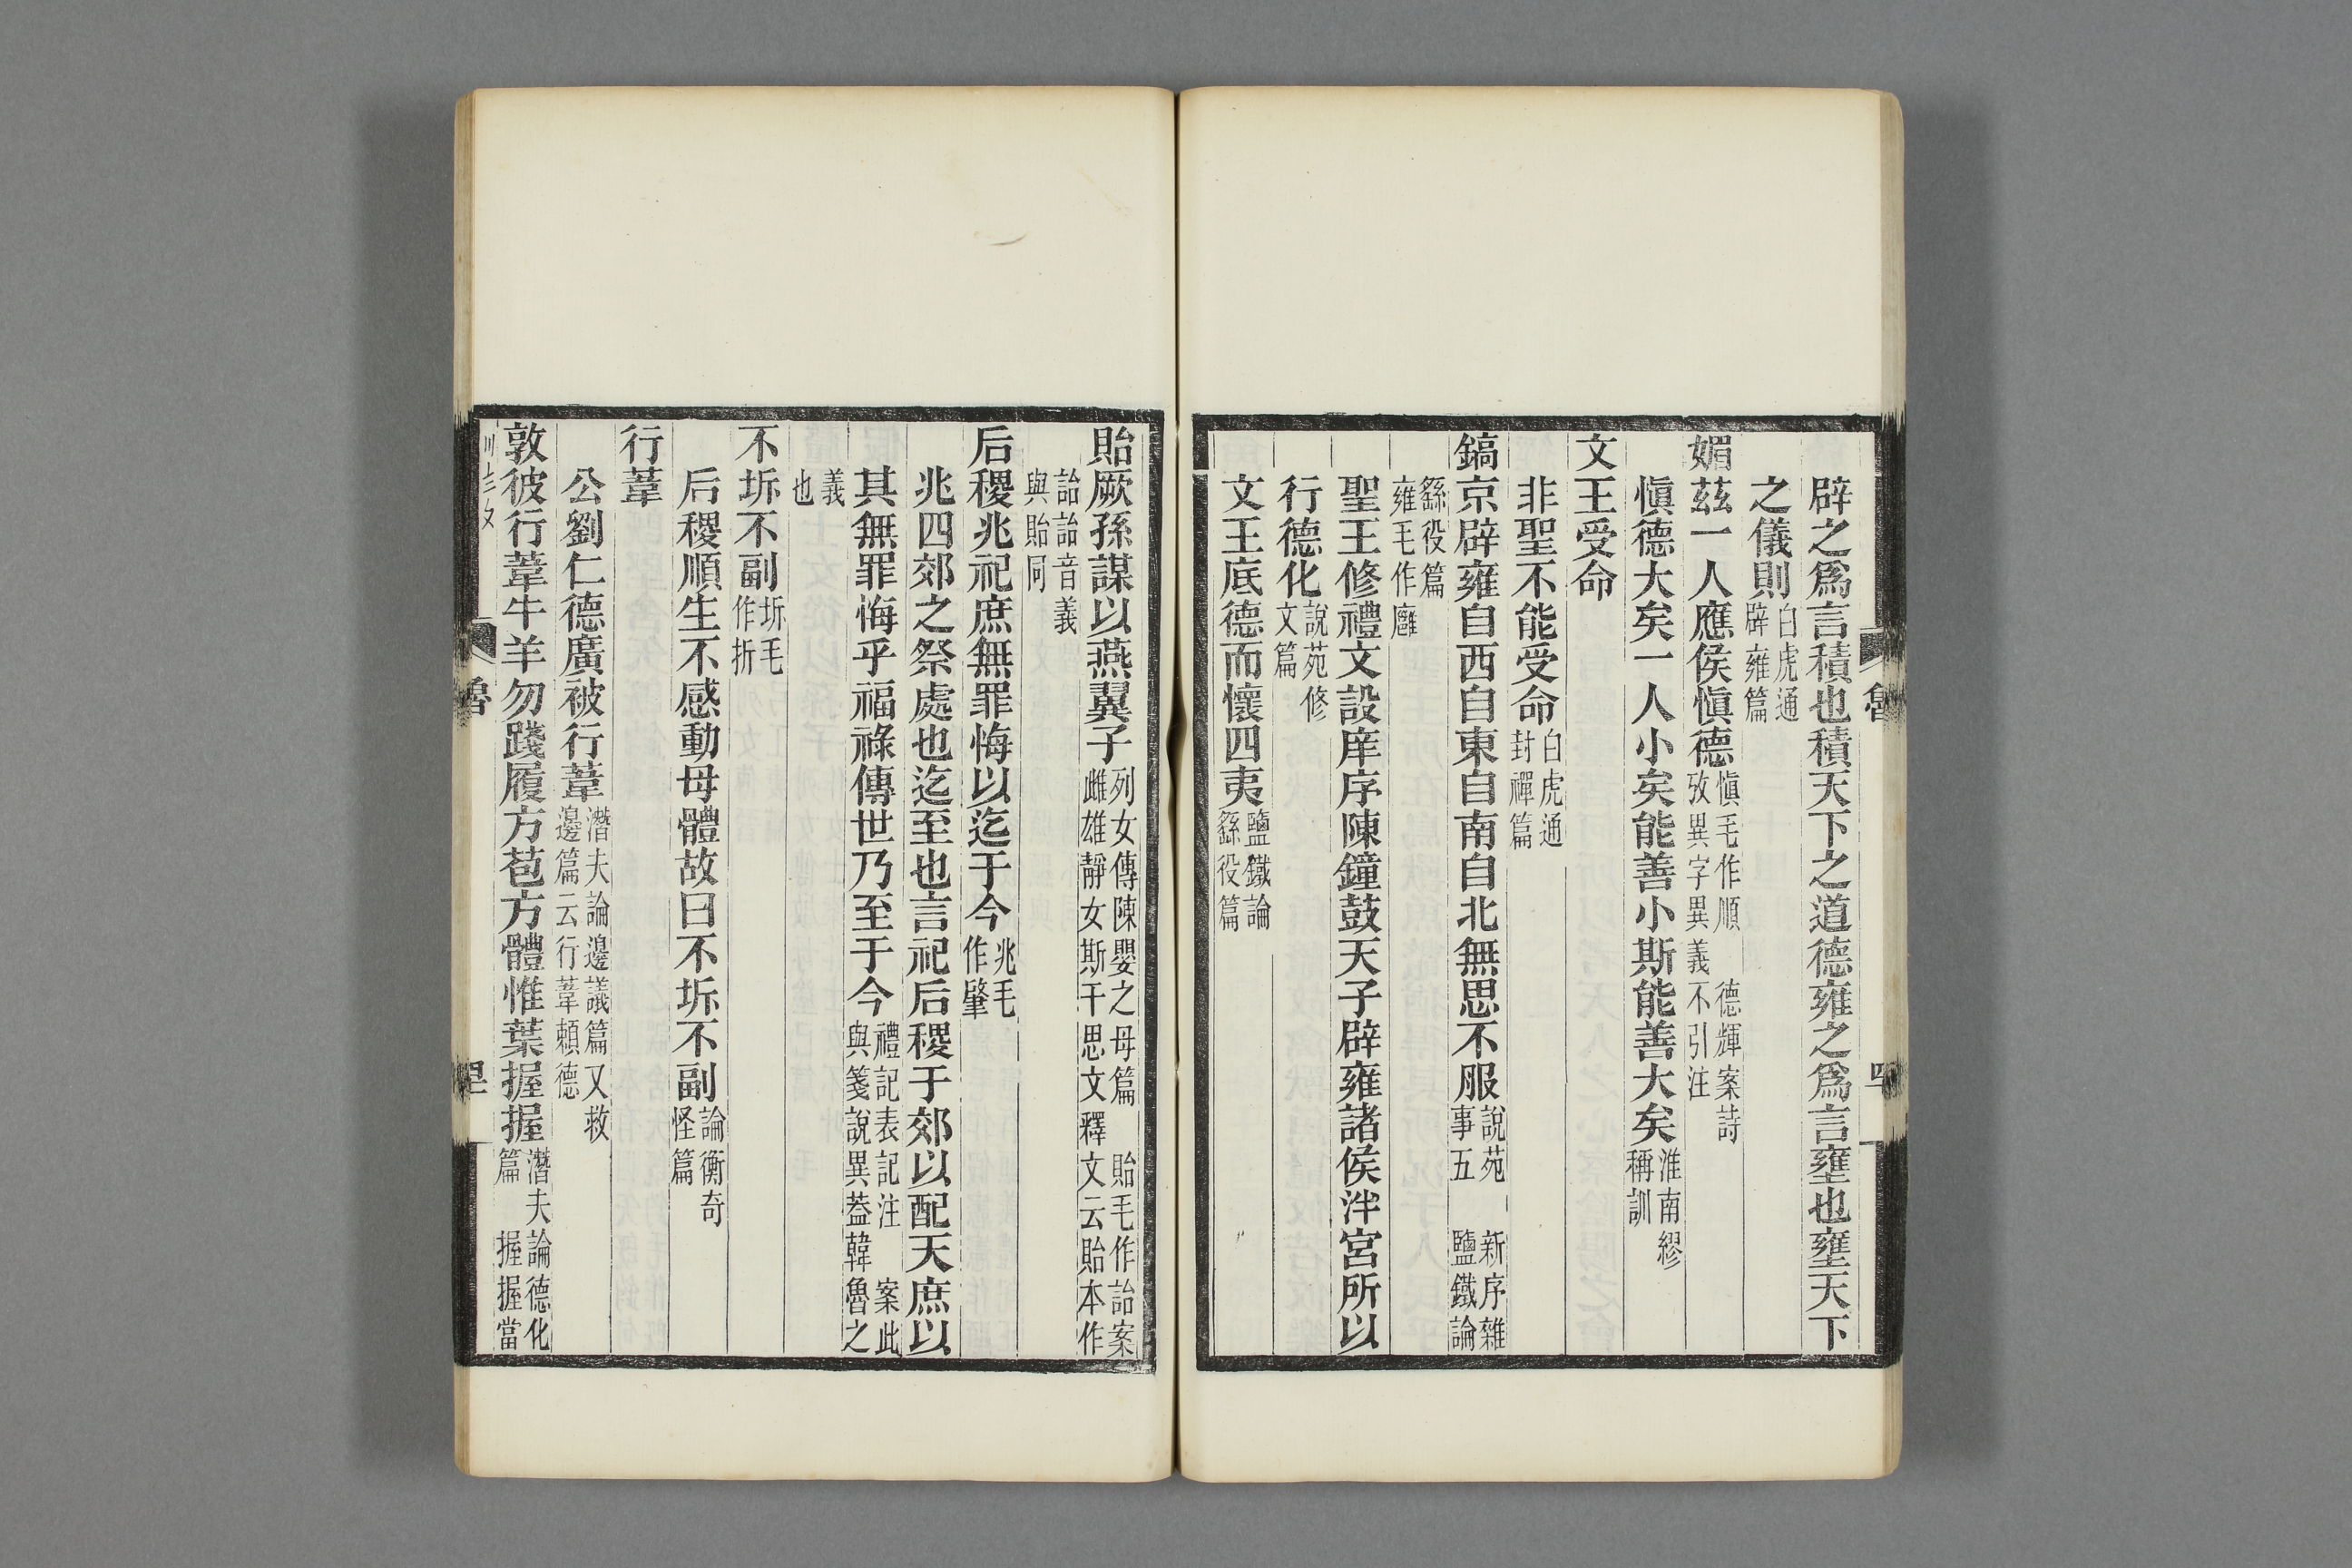 辟之爲言積也積天下之道德雍之爲言壅也壅天下
之儀則白虎通辟雍篇
媚茲一人應侯愼德愼毛作順攷異字異義不引注德輝案詩
愼德大矣一人小矣能善小斯能善大矣淮南繆稱訓
文王受命
非聖不能受命白虎通封禪篇
鎬京辟雍自西自東自南自北無思不服說苑事五新序雜鹽鐵論
繇役篇雍毛作廱
聖王修禮文設庠序陳鐘鼓天子辟雍諸侯泮宮所以
行德化說苑修文篇
文王底德而懷四夷鹽鐵論繇役篇
貽厥孫謀以燕翼子列女傳陳嬰之母篇雌雄靜女斯干思文釋貽毛作詒案文云貽本作
詒詒音義與貽同
后稷兆祀庶無罪悔以迄于今兆毛作肇
兆四郊之祭處也迄至也言祀后稷于郊以配天庶以
其無罪悔乎福祿傳世乃至于今禮記表記注案此與箋說異蓋韓魯之
義也
不坼不副坼毛作拆
后稷順生不感動母體故曰不坼不副論衡奇怪篇
行葦
公劉仁德廣被行葦潛夫論邊議篇又救邊篇云行葦賴德
敦彼行葦牛羊勿踐履方苞方體惟葉握握潛夫論德化篇握握當
魯